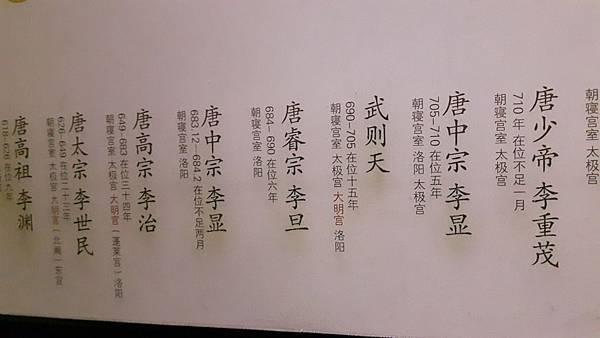 朝寝宫室 太极宫
唐少帝 李重茂
710年 在位不足一月
朝寝宫室 太极宫
唐中宗 李显
705－710 在位五年
朝寝宫室 洛阳 太极宫
武则天
690－705 在位十五年
朝寝宫室 太极宫 大明宫 洛阳
唐睿宗 李旦
684－690 在位六年
朝寝宫室 洛阳
唐中宗 李显
683.12－684.2 在位不足两月
朝寝宫室 洛阳
唐高宗 李治
649－683 在位三十四年
朝寝宫室 太极宫 大明宫（蓬莱宫）洛阳
唐太宗 李世民
626－649 在位二十三年
朝寝宫室 太极宫 大明宫（北阙）东宫
唐高祖 李渊
618－626 在位九年